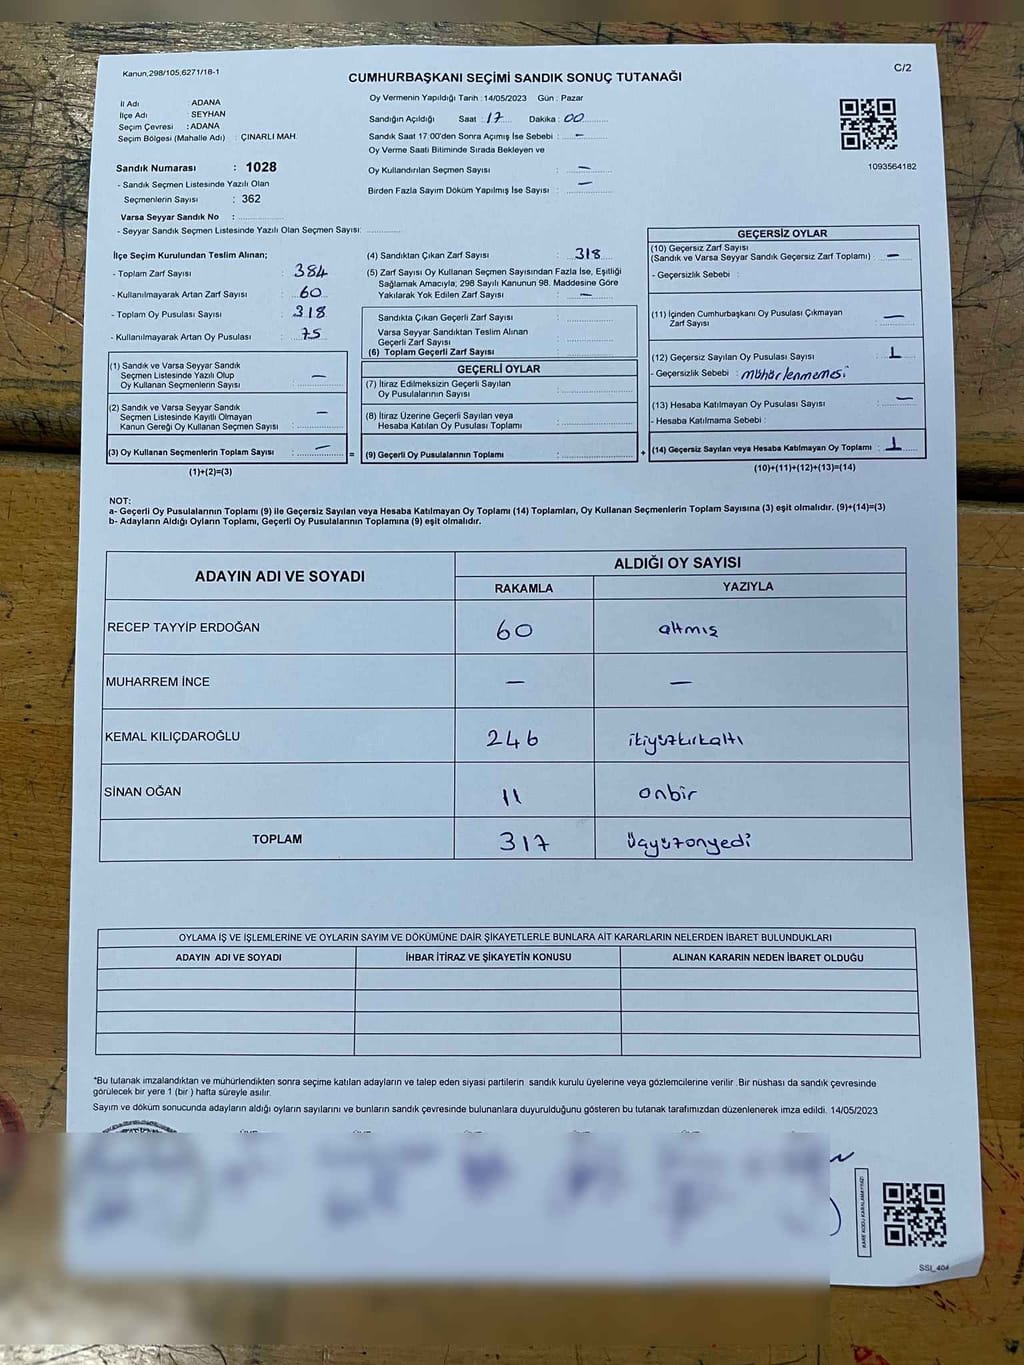 Kanun,298/105,6271/18-1
C/2
CUMHURBAŞKANI SEÇİMİ SANDIK SONUÇ TUTANAĞI
İl Adı : ADANA
İlçe Adı : SEYHAN
Seçim Çevresi : ADANA
Seçim Bölgesi (Mahalle Adı) : ÇINARLI MAH.
Sandık Numarası : 1028
- Sandık Seçmen Listesinde Yazılı Olan
Seçmenlerin Sayısı : 362
Varsa Seyyar Sandık No :
- Seyyar Sandık Seçmen Listesinde Yazılı Olan Seçmen Sayısı:
Oy Vermenin Yapıldığı Tarih :14/05/2023 Gün : Pazar
Sandığın Açıldığı Saat : 17 Dakika : 00
Sandık Saat 17:00'den Sonra Açımış İse Sebebi : —
Oy Verme Saati Bitiminde Sırada Bekleyen ve
Oy Kullandırılan Seçmen Sayısı : —
Birden Fazla Sayım Döküm Yapılmış İse Sayısı : —
1093564182
İlçe Seçim Kurulundan Teslim Alınan;
- Toplam Zarf Sayısı : 384
- Kullanılmayarak Artan Zarf Sayısı : 60
- Toplam Oy Pusulası Sayısı : 318
- Kullanılmayarak Artan Oy Pusulası : 75
(1) Sandık ve Varsa Seyyar Sandık
Seçmen Listesinde Yazılı Olup
Oy Kullanan Seçmenlerin Sayısı : —
(2) Sandık ve Varsa Seyyar Sandık
Seçmen Listesinde Kayıtlı Olmayan
Kanun Gereği Oy Kullanan Seçmen Sayısı : —
(3) Oy Kullanan Seçmenlerin Toplam Sayısı : —
(1)+(2)=(3)
=
(4) Sandıktan Çıkan Zarf Sayısı : 318
(5) Zarf Sayısı Oy Kullanan Seçmen Sayısından Fazla İse, Eşitliği
Sağlamak Amacıyla; 298 Sayılı Kanunun 98. Maddesine Göre
Yakılarak Yok Edilen Zarf Sayısı : —
Sandıkta Çıkan Geçerli Zarf Sayısı :
Varsa Seyyar Sandıktan Teslim Alınan
Geçerli Zarf Sayısı :
(6) Toplam Geçerli Zarf Sayısı :
GEÇERLİ OYLAR
(7) İtiraz Edilmeksizin Geçerli Sayılan
Oy Pusulalarının Sayısı :
(8) İtiraz Üzerine Geçerli Sayılan veya
Hesaba Katılan Oy Pusulası Toplamı :
(9) Geçerli Oy Pusulalarının Toplamı :
+
GEÇERSİZ OYLAR
(10) Geçersiz Zarf Sayısı
(Sandık ve Varsa Seyyar Sandık Geçersiz Zarf Toplamı) : —
- Geçersizlik Sebebi :
(11) İçinden Cumhurbaşkanı Oy Pusulası Çıkmayan
Zarf Sayısı : —
(12) Geçersiz Sayılan Oy Pusulası Sayısı : 1
- Geçersizlik Sebebi : mühürlenmemesi
(13) Hesaba Katılmayan Oy Pusulası Sayısı : —
- Hesaba Katılmama Sebebi :
(14) Geçersiz Sayılan veya Hesaba Katılmayan Oy Toplamı : 1
(10)+(11)+(12)+(13)=(14)
NOT:
a- Geçerli Oy Pusulalarının Toplamı (9) ile Geçersiz Sayılan veya Hesaba Katılmayan Oy Toplamı (14) Toplamları, Oy Kullanan Seçmenlerin Toplam Sayısına (3) eşit olmalıdır. (9)+(14)=(3)
b- Adayların Aldığı Oyların Toplamı, Geçerli Oy Pusulalarının Toplamına (9) eşit olmalıdır.
ADAYIN ADI VE SOYADI
ALDIĞI OY SAYISI
RAKAMLA YAZIYLA
RECEP TAYYİP ERDOĞAN 60 altmış
MUHARREM İNCE — —
KEMAL KILIÇDAROĞLU 246 ikiyüzkırkaltı
SİNAN OĞAN 11 onbir
TOPLAM 317 üçyüzonyedi
OYLAMA İŞ VE İŞLEMLERİNE VE OYLARIN SAYIM VE DÖKÜMÜNE DAİR ŞİKAYETLERLE BUNLARA AİT KARARLARIN NELERDEN İBARET BULUNDUKLARI
ADAYIN ADI VE SOYADI İHBAR İTİRAZ VE ŞİKAYETİN KONUSU ALINAN KARARIN NEDEN İBARET OLDUĞU
*Bu tutanak imzalandıktan ve mühürlendikten sonra seçime katılan adayların ve talep eden siyasi partilerin sandık kurulu üyelerine veya gözlemcilerine verilir .Bir nüshası da sandık çevresinde
görülecek bir yere 1 (bir ) hafta süreyle asılır.
Sayım ve döküm sonucunda adayların aldığı oyların sayılarını ve bunların sandık çevresinde bulunanlara duyurulduğunu gösteren bu tutanak tarafımızdan düzenlenerek imza edildi. 14/05/2023
KARE KODU KARALAMAYINIZ!
SSİ_404